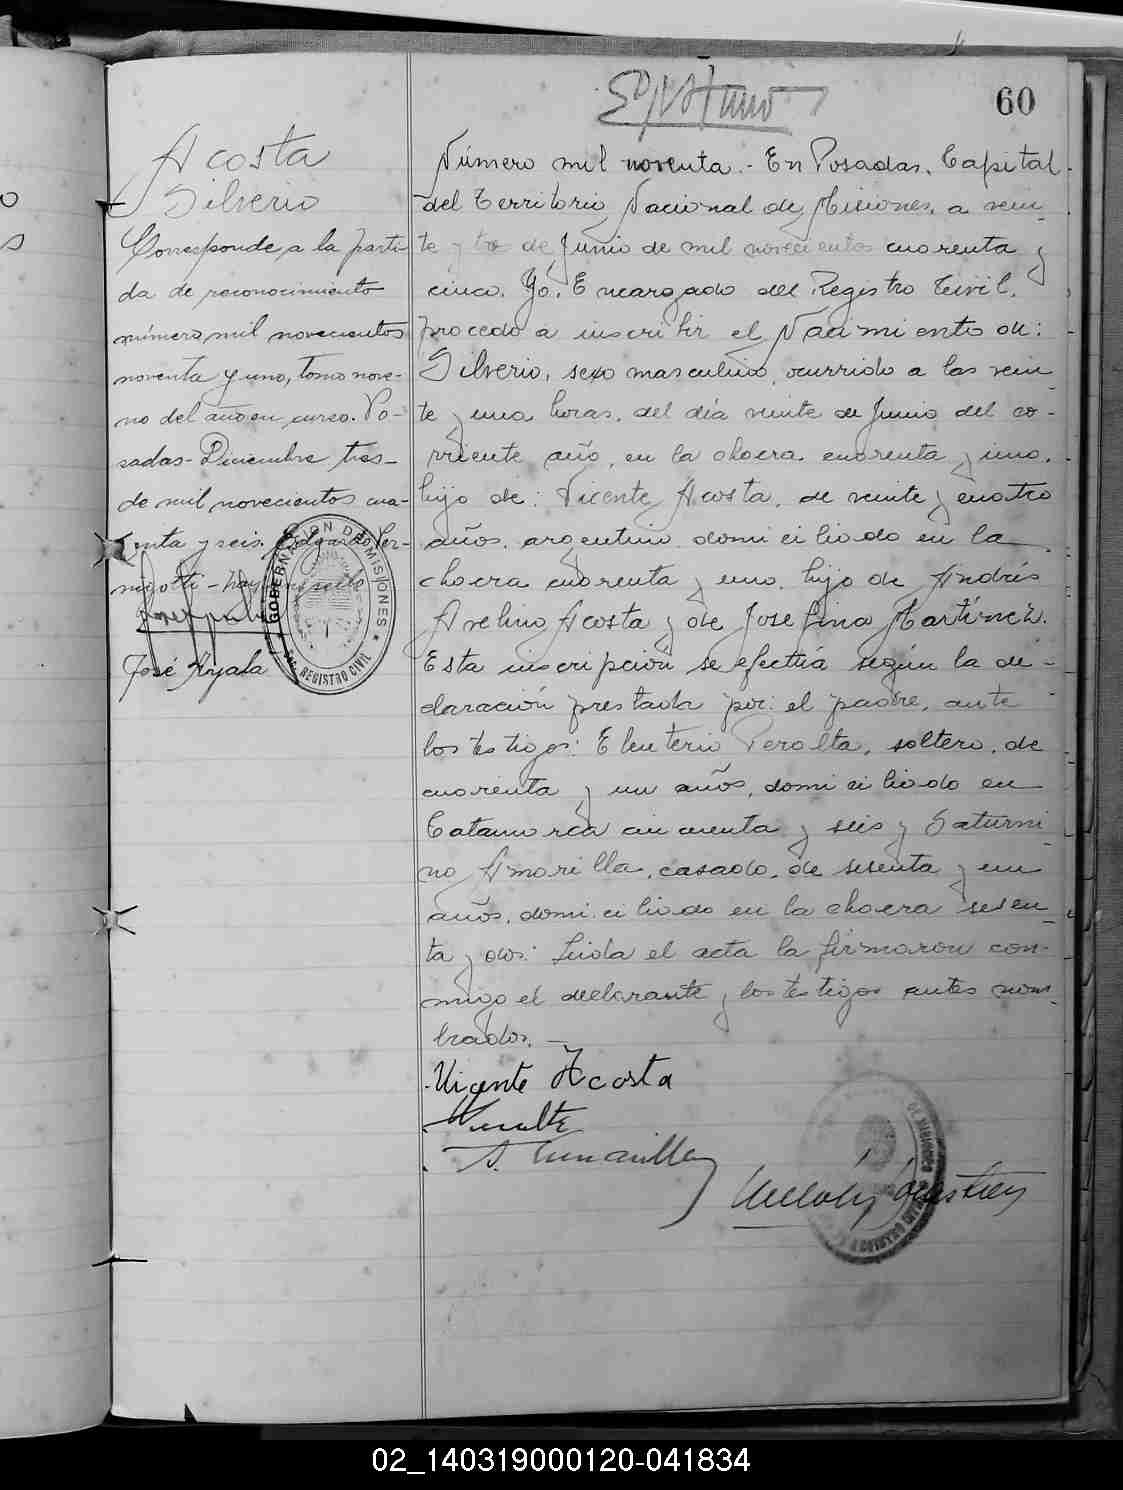 60
Acosta
Silverio
Corresponde a la parti-
da de reconocimiento
número mil novecientos
noventa y uno, tomo nove-
no del año en curso. Po-
sadas- Diciembre tres-
de mil novecientos cua-
renta y seis. Edgardo Ver-
miotti - hay un sello
José Ayala
GOBERNACION DE MISIONES
REGISTRO CIVIL
Número mil noventa.- En Posadas, Capital
del Territorio Nacional de Misiones, a vein-
te y tres de Junio de mil novecientos cuarenta y
cinco. Yo, Encargado del Registro Civil,
procedo a inscribir el Nacimiento de:
Silverio, sexo masculino, ocurrido a las vein-
te y una horas, del día veinte de Junio del co-
rriente año, en la chacra cuarenta y uno,
hijo de: Vicente Acosta, de veinte y cuatro
años, argentino domiciliado en la
chacra cuarenta y uno, hijo de Andrés
Avelino Acosta y de Josefina Martínez.
Esta inscripción se efectúa según la de-
claración prestada por: el padre, ante
los testigos: Eleuterio Peralta, soltero, de
cuarenta y un años, domiciliado en
Catamarca cincuenta y seis y Saturni-
no Amarilla, casado, de sesenta y un
años, domiciliado en la chacra sesen-
ta y dos: Leida el acta la firmaron con-
migo el declarante y los testigos antes nom-
brados.
Vicente Acosta
S. Amarilla
REGISTRO CIVIL
02_140319000120-041834